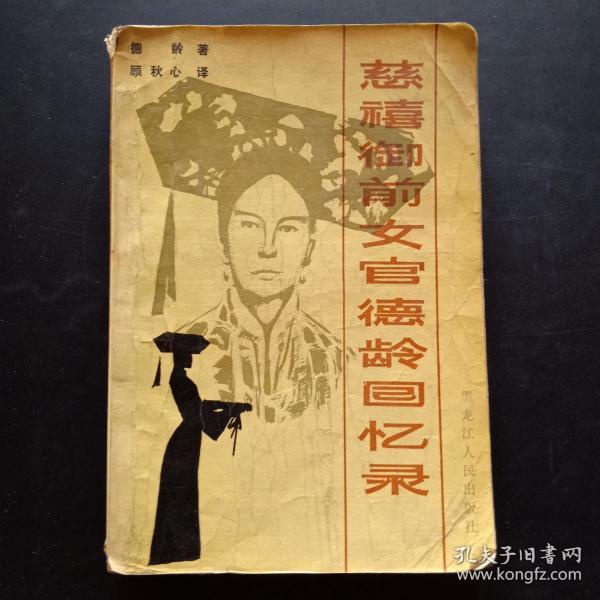 德龄 著
顾秋心 译
慈禧御前女官德龄回忆录
黑龙江人民出版社
孔夫子旧书网
www.kongfz.com